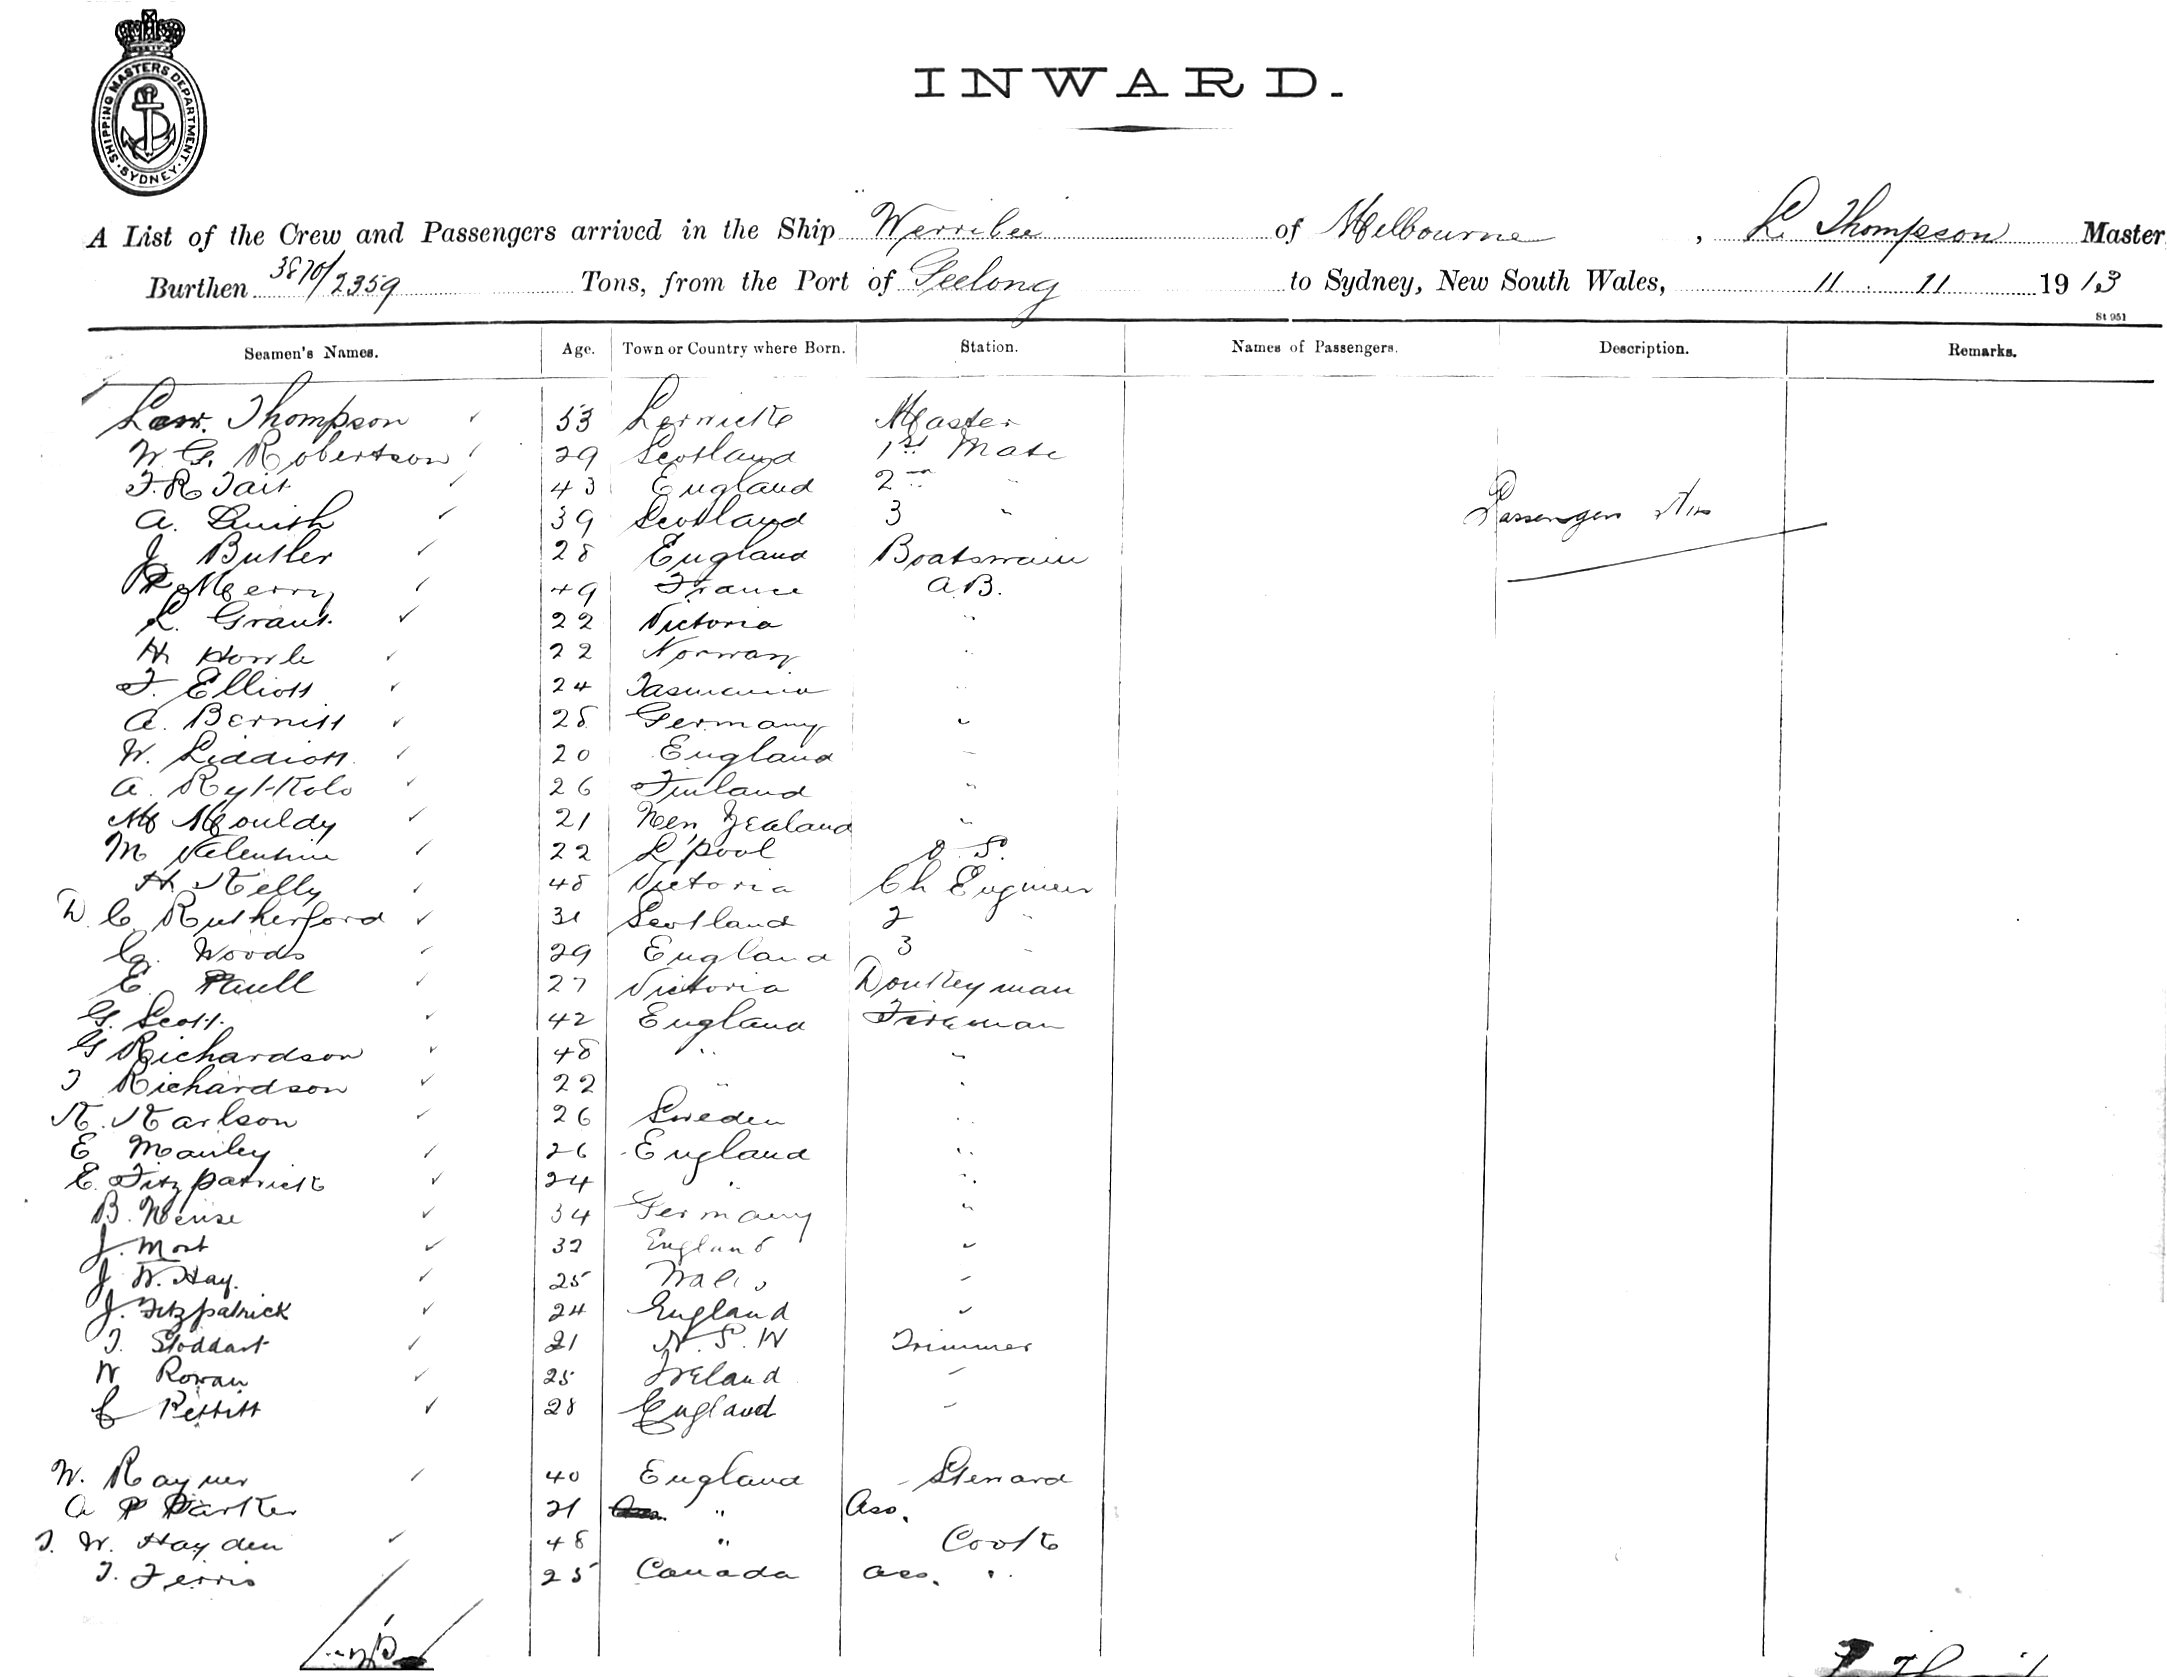 SHIPPING MASTERS DEPARTMENT
SYDNEY
INWARD.
A List of the Crew and Passengers arrived in the Ship Werribee of Melbourne, L. Thompson Master
Burthen 3870/2359 Tons, from the Port of Geelong to Sydney, New South Wales, 11 . 11 1913
St 951
Seamen's Names. Age. Town or Country where Born. Station. Names of Passengers. Description. Remarks.
Law. Thompson 53 Lerwick Master
W. G. Robertson 29 Scotland 1st Mate
F. R. Tait 43 England 2nd "
A. 39 Scotland 3 "
J Butler 28 England Boatswain
Merry 49 France A.B.
L. Grant. 22 Victoria "
H 22 Norway "
F. Elliott 24 Tasmania "
A. Bernitt 28 Germany "
W. Liddiott 20 England "
A. 26 Finland "
M Mouldy 21 New Zealand "
M Valentine 22 L'pool O. S.
H. Kelly 48 Victoria Ch Engineer
D. C. Rutherford 31 Scotland 2 "
C. Woods 29 England 3 "
E. Paull 27 Victoria Donkeyman
G. Scott. 42 England Fireman
G Richardson 48 " "
T Richardson 22 " "
K. Karlson 26 Sweden "
E Manley 26 England "
E. Fitzpatrick 24 " "
B. 34 Germany "
J. Mort 32 England "
J. W. Hay. 25 Wales "
J. Fitzpatrick 24 England "
T. Stoddart 21 N. S. W Trimmer
W Rowan 25 Ireland "
C Pettitt 28 England "
W. Rayner 40 England Steward
A P Parker 21 " Ass.
T. W. Hayden 48 " Cook
T. Ferris 25 Canada Ass. "
Passengers